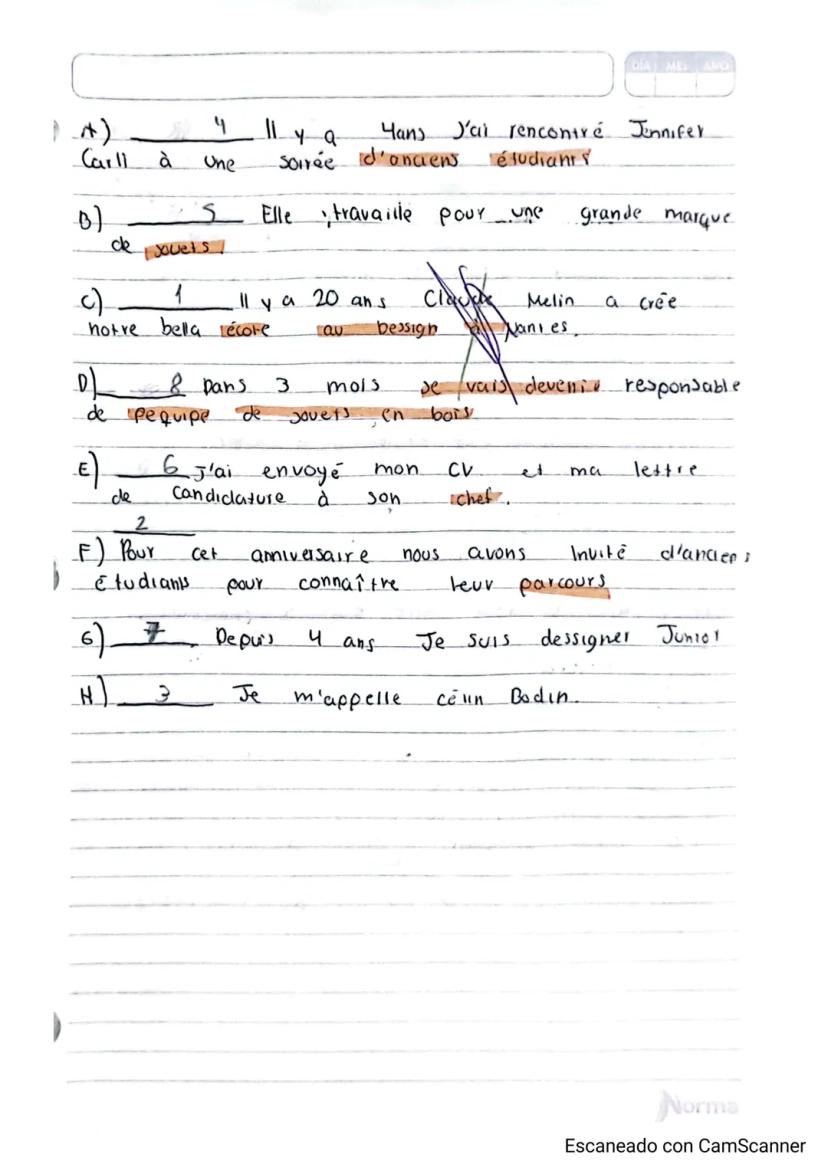 DÍA MES AÑO
A) 4 Il y a 4ans J'ai rencontré Jennifer
Carll à une soirée d'anciens étudiants
B) 5 Elle travaille pour une grande marque
de jouets.
C) 1 Il y a 20 ans Claude Melin a crée
notre bella école au dessign à Nantes.
D) 8 Dans 3 mois Je vais devenir responsable
de l'equipe de jouets en bois
E) 6 J'ai envoyé mon CV et ma lettre
de candidature à son chef.
2
F) Pour cet anniversaire nous avons Invité d'anciens
Étudiants pour connaître leur parcours
G) 7. Depuis 4 ans Je suis dessigner Junior
H) 3 Je m'appelle célin Bodin.
Norma
Escaneado con CamScanner